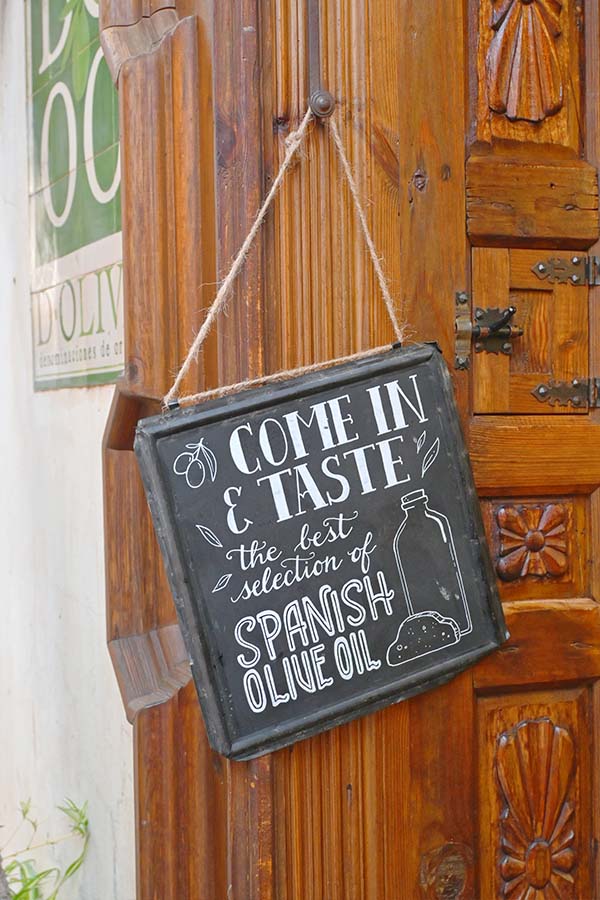 D'OLIV
denominaciones de or
COME IN
& TASTE
the best
selection of
SPANISH
OLIVE OIL